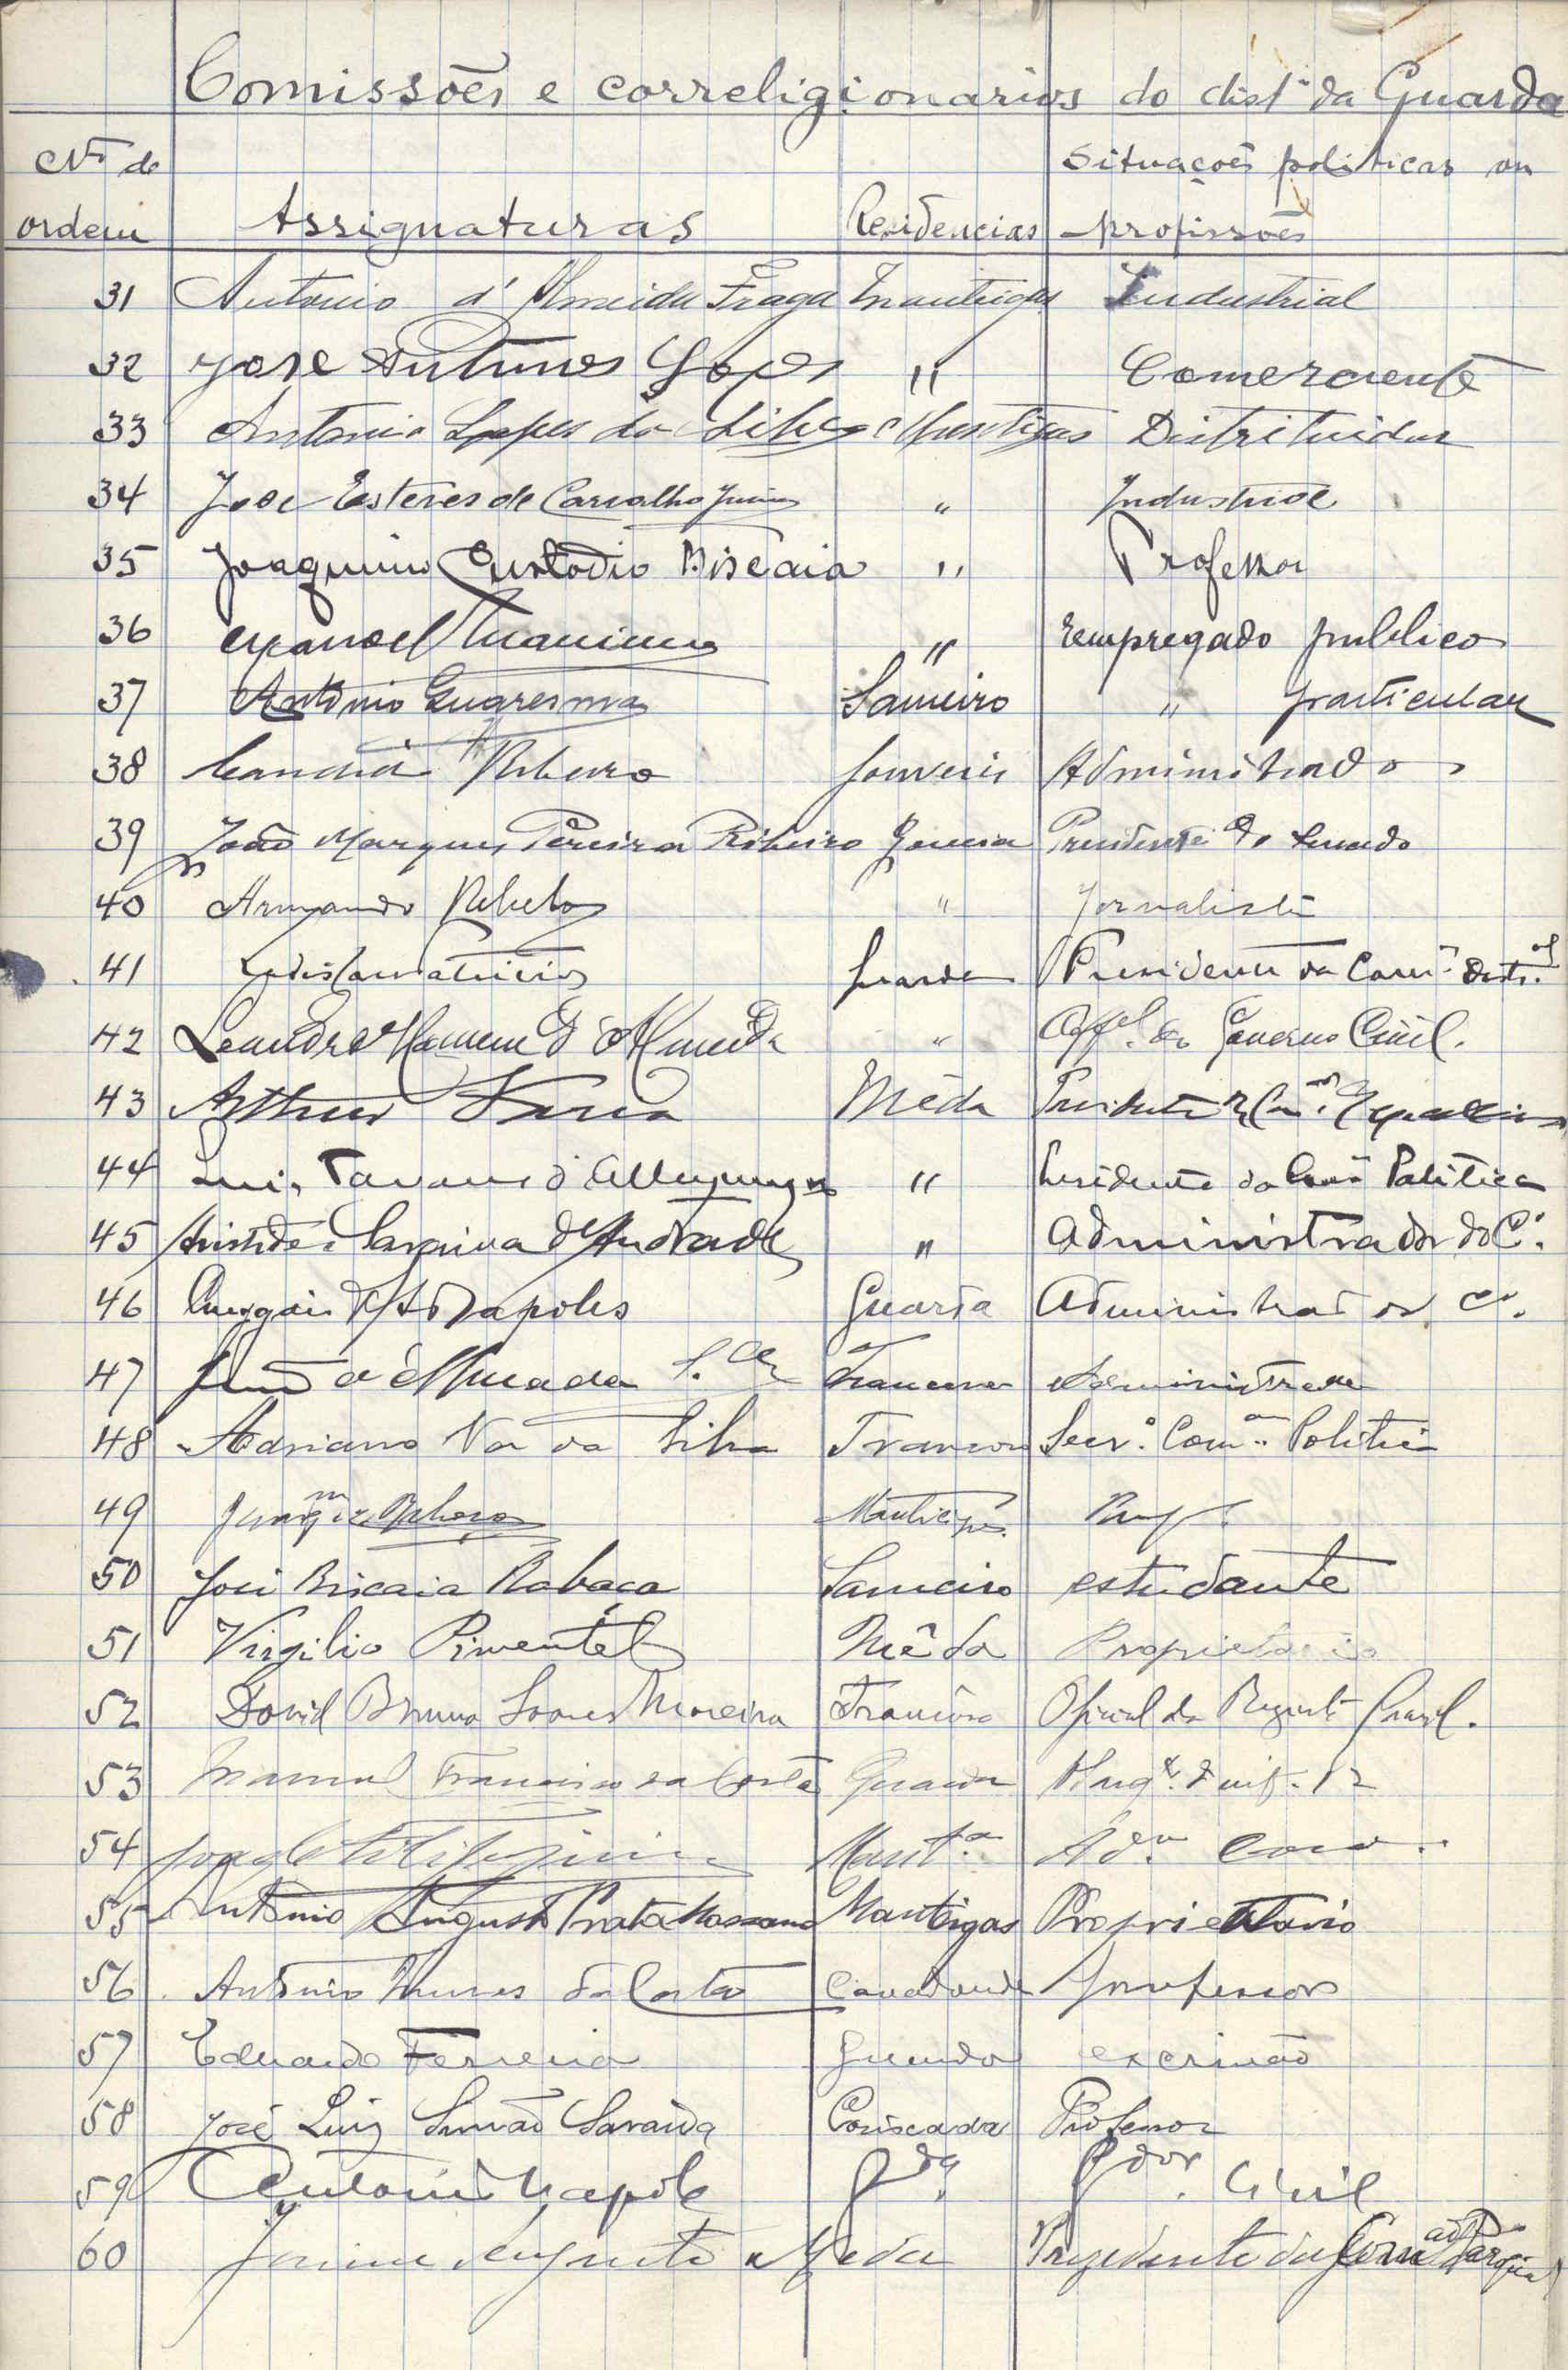 Comissões e correligionarios do dist.º da Guarda
Nº de
ordem Assignaturas Residencias Situações politicas ou profissões
31 Antonio d'Almeida Fraga Manteigas Industrial
32 José Antunes Lopes " Comerciente
33 Antonio Lopes da Silva Manteigas Distribuidor
34 José Esteves de Carvalho Junior " Industrial
35 Joaquim Custodio Biscaia " Professor
36 Manoel " Empregado publico
37 Antonio Quaresma Sameiro " particular
38 Candido Ribeiro Gouveia Administrador
39 João Marques Pereira Ribeiro Gouveia Presidente do Senado
40 Armando Rebelo " Jornalista
41 Guarda Presidente da Com.ᵐ Dist.ᵃˡ
42 Leandro Homem d'Almeida " Off.ᵉˡ do Governo Civil.
43 Arthur Mêda Presidente
44 Luis Tavares d' " Presidente da Com.ᵃᵐ Politica
45 Aristides Saraiva d'Andrade " Administrador do C.º
46 Napoles Guarda Administrador C.º
47 d'Almeida Trancoso Administrador
48 Adriano Vaz da Silva Trancoso Secr.º Com.ᵃᵐ Politica
49 Manteigas Prof.
50 José Biscaia Rabaça Sameiro estudante
51 Virgilio Pimentel Mêda Proprietario
52 David Bruno Soares Moreira Trancoso Oficial do Registo Civil.
53 Manuel Francisco da Costa Guarda Sarg.ᵗᵉ d'inf. 12
54 Mant.ᵃˢ Ad.ᵒʳ
55 Antonio Augusto Prata Massano Manteigas Proprietario
56 Antonio Nunes da Costa Cavadoude professor
57 Eduardo Ferreira Guarda escrivão
58 José Luiz Simão Saraiva Coriscada Professor
59 Antonio Napoles G.ᵈᵃ G.ᵈᵒʳ Civil
60 Jaime Augusto Meda Prezidente da Com.ᵃᵒ Paroquial